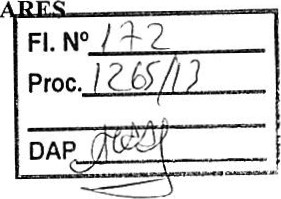 ARES
Fl. Nº 172
Proc. 1265/13
DAP